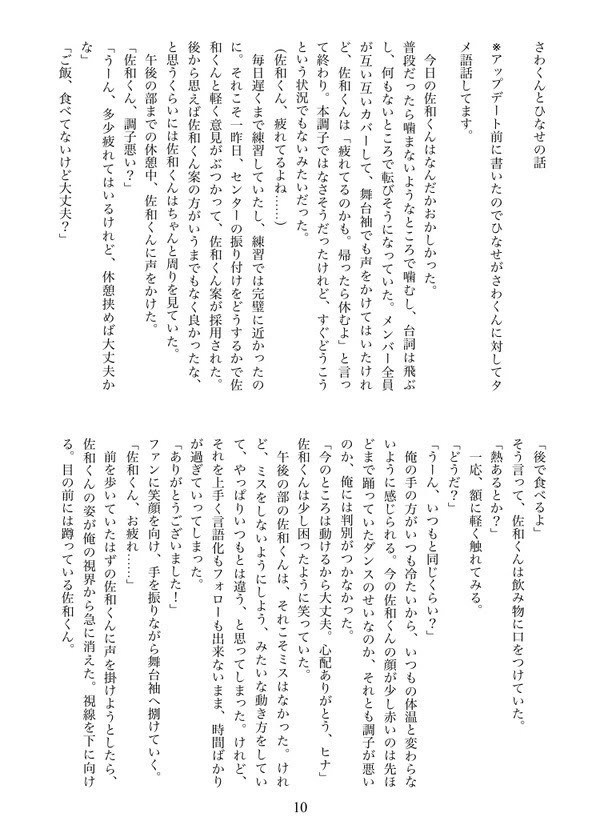 さわくんとひなせの話
※アップデート前に書いたのでひなせがさわくんに対してタ
メ語話してます。
今日の佐和くんはなんだかおかしかった。
普段だったら噛まないようなところで噛むし、台詞は飛ぶ
し、何もないところで転びそうになっていた。メンバー全員
が互い互いカバーして、舞台袖でも声をかけてはいたけれ
ど、佐和くんは「疲れてるのかも。帰ったら休むよ」と言っ
て終わり。本調子ではなさそうだったけれど、すぐどうこう
という状況でもないみたいだった。
(佐和くん、疲れてるよね……)
毎日遅くまで練習していたし、練習では完璧に近かったの
に。それこそ一昨日、センターの振り付けをどうするかで佐
和くんと軽く意見がぶつかって、佐和くん案が採用された。
後から思えば佐和くん案の方がいうまでもなく良かったな、
と思うくらいには佐和くんはちゃんと周りを見ていた。
午後の部までの休憩中、佐和くんに声をかけた。
「佐和くん、調子悪い?」
「うーん、多少疲れてはいるけれど、休憩挟めば大丈夫か
な」
「ご飯、食べてないけど大丈夫?」
「後で食べるよ」
そう言って、佐和くんは飲み物に口をつけていた。
「熱あるとか?」
一応、額に軽く触れてみる。
「どうだ?」
「うーん、いつもと同じくらい?」
俺の手の方がいつも冷たいから、いつもの体温と変わらな
いように感じられる。今の佐和くんの顔が少し赤いのは先ほ
どまで踊っていたダンスのせいなのか、それとも調子が悪い
のか、俺には判別がつかなかった。
「今のところは動けるから大丈夫。心配ありがとう、ヒナ」
佐和くんは少し困ったように笑っていた。
午後の部の佐和くんは、それこそミスはなかった。けれ
ど、ミスをしないようにしよう、みたいな動き方をしてい
て、やっぱりいつもとは違う、と思ってしまった。けれど、
それを上手く言語化もフォローも出来ないまま、時間ばかり
が過ぎていってしまった。
「ありがとうございました!」
ファンに笑顔を向け、手を振りながら舞台袖へ捌けていく。
「佐和くん、お疲れ……」
前を歩いていたはずの佐和くんに声を掛けようとしたら、
佐和くんの姿が俺の視界から急に消えた。視線を下に向け
る。目の前には蹲っている佐和くん。
10